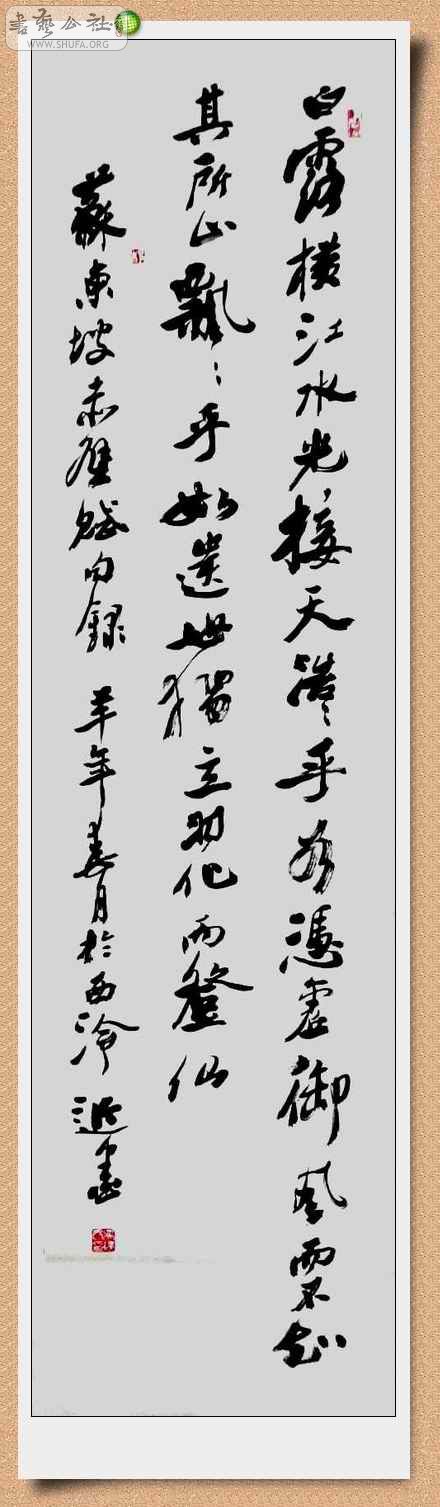 書藝公社
WWW.SHUFA.ORG
白露横江水光接天浩〻乎若憑虛御風而不知
其所止飄〻乎如遺世獨立羽化而登仙
蘇東坡赤壁賦句錄 羊年春月於西泠 書